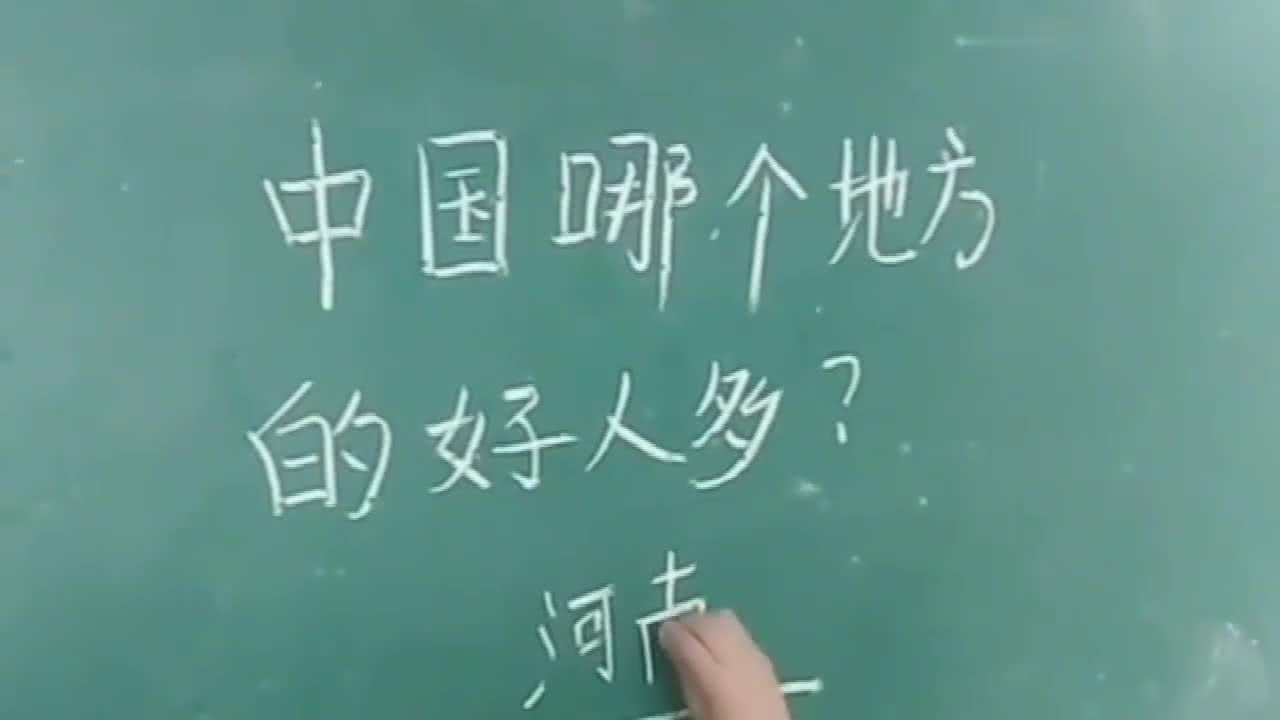 中国哪个地方
的好人多？
河南